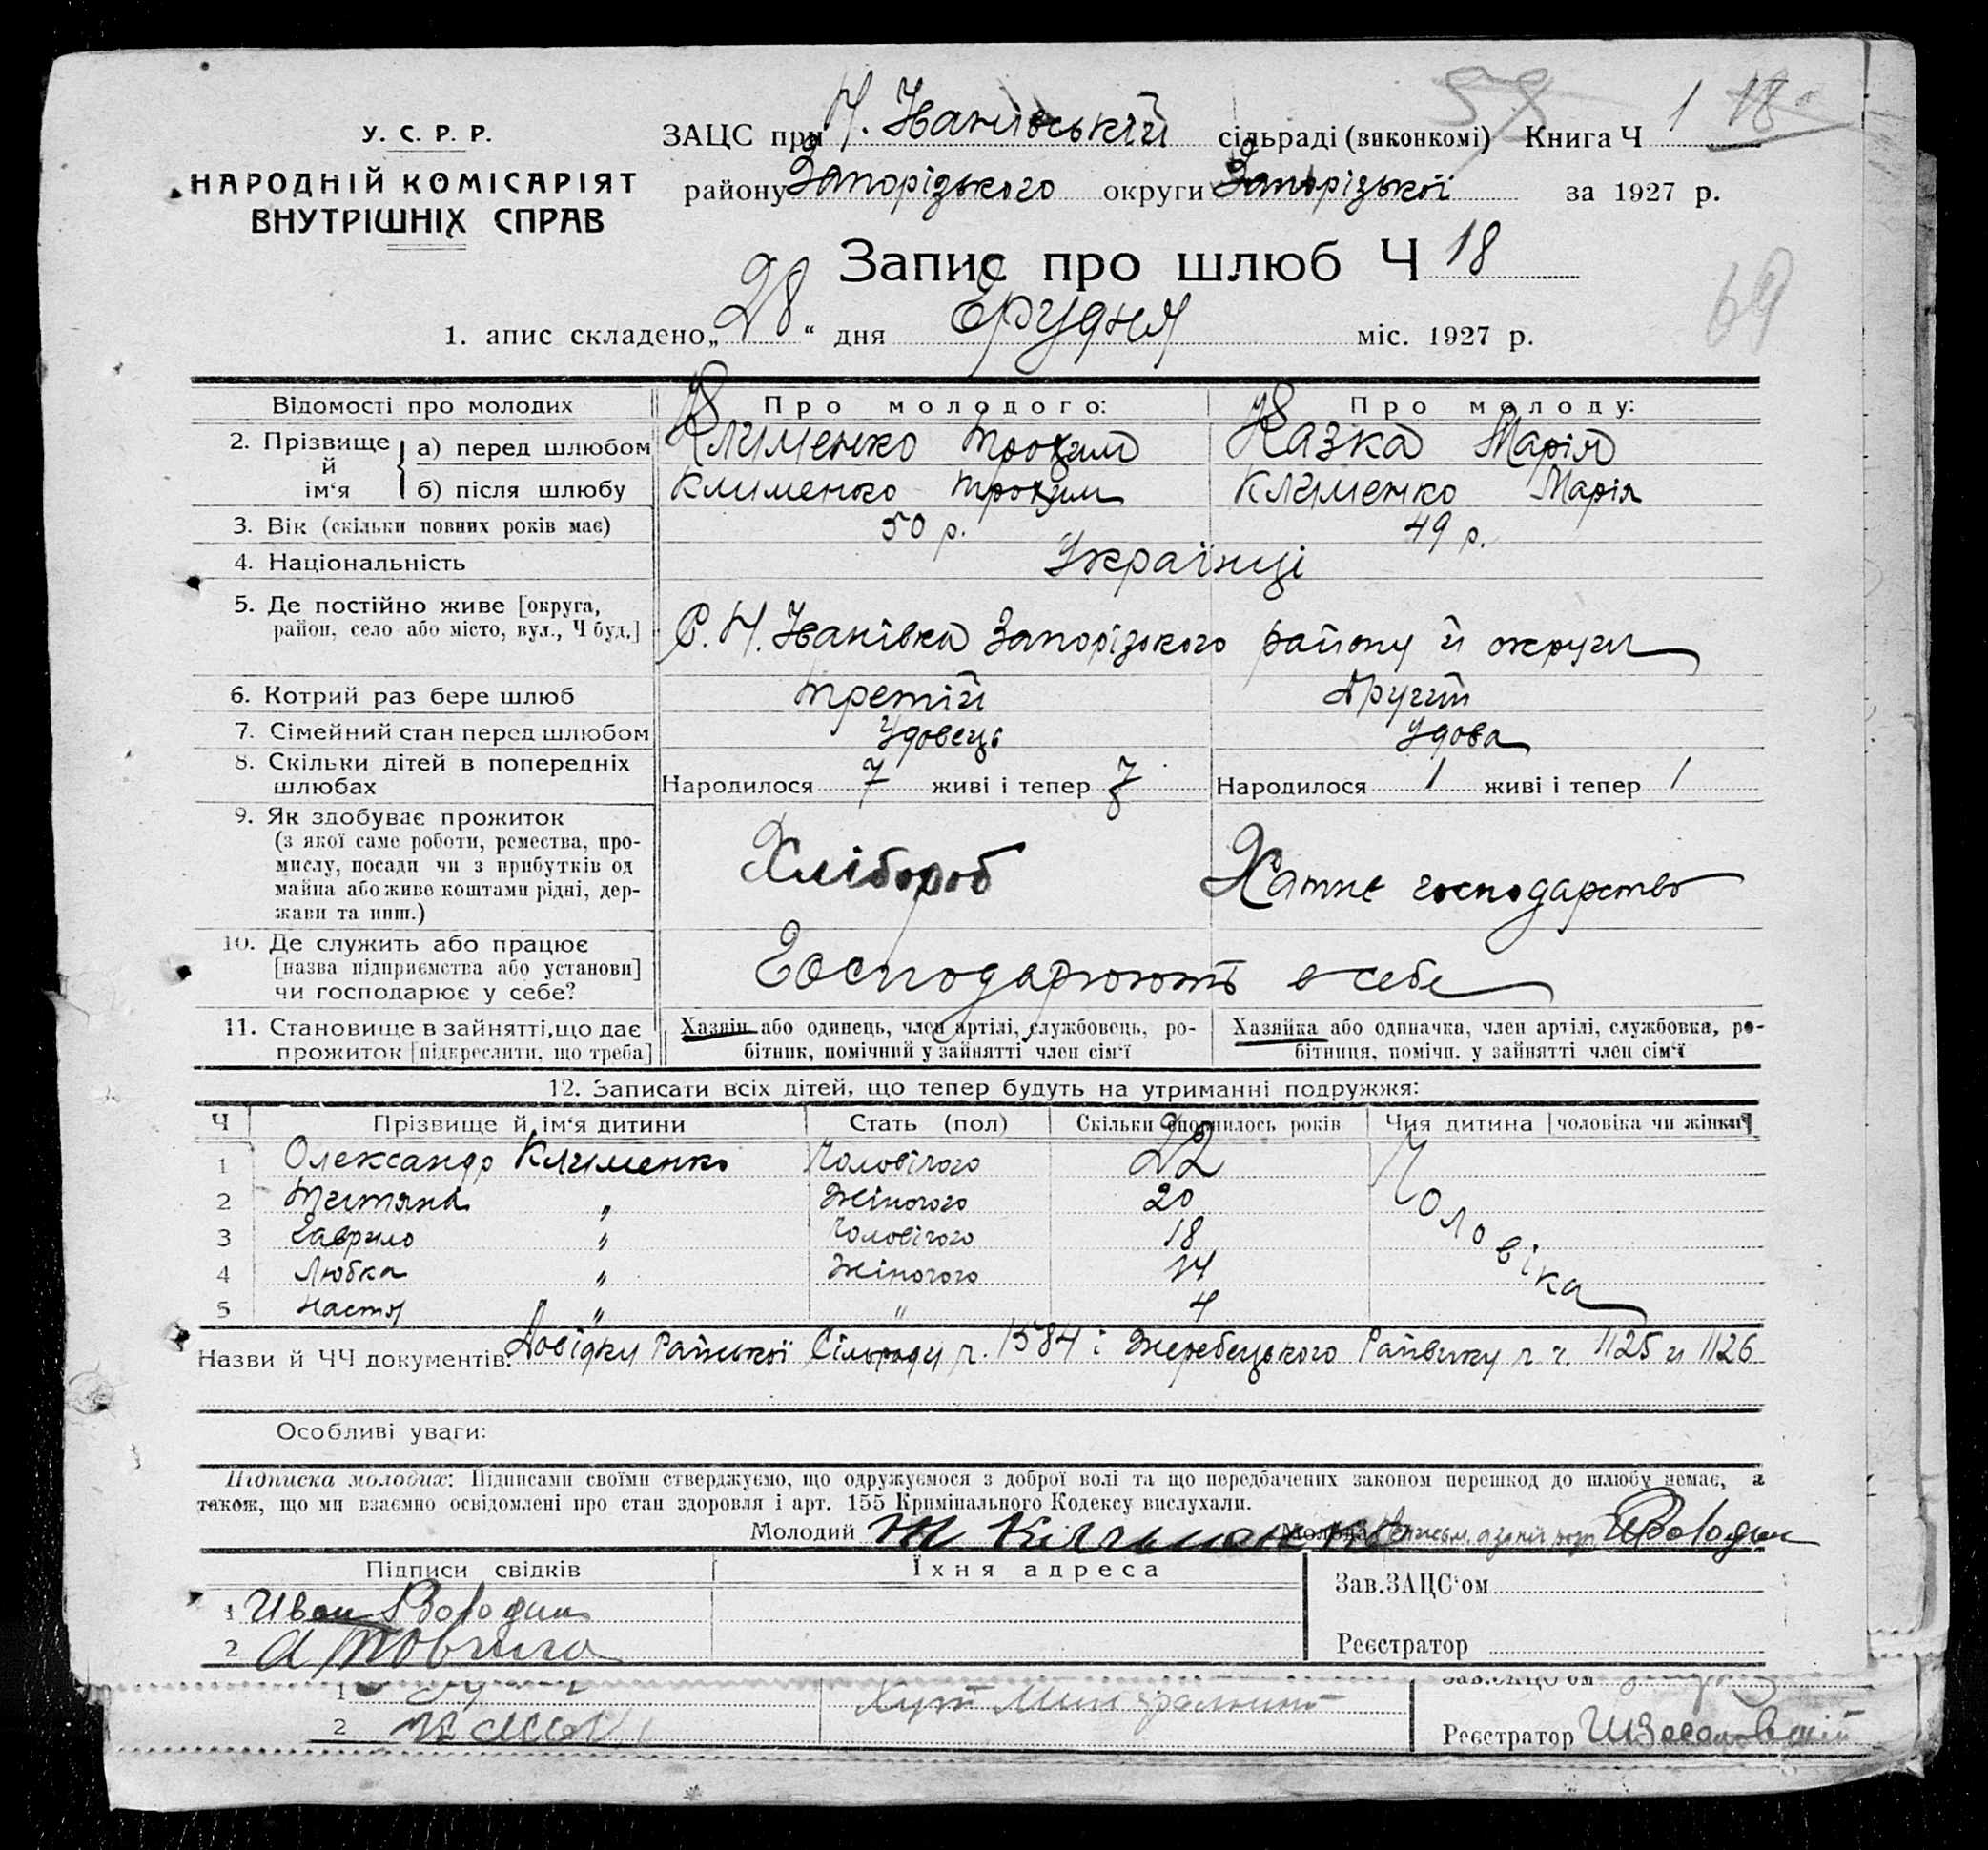 У. С. Р. Р.
НАРОДНІЙ КОМІСАРІЯТ
ВНУТРІШНІХ СПРАВ
ЗАЦС при Н. Іванівській сільраді (виконкомі) Книга Ч 1 18
району Запорізького округи Запорізької за 1927 р.
Запис про шлюб Ч 18
69
1. апис складено „28“ дня Грудня міс. 1927 р.
Відомості про молодих
Про молодого:
Про молоду:
2. Прізвище й ім‘я
а) перед шлюбом Клименко Трохим Казка Марія
б) після шлюбу Клименко Трохим Клименко Марія
3. Вік (скільки повних років має) 50 р. 49 р.
4. Національність Українці
5. Де постійно живе [округа,
район, село або місто, вул., Ч буд.] С. Н. Іванівка Запорізького району й округи
6. Котрий раз бере шлюб третій другий
7. Сімейний стан перед шлюбом Удовець Удова
8. Скільки дітей в попередніх
шлюбах Народилося 7 живі і тепер 7 Народилося 1 живі і тепер 1
9. Як здобуває прожиток
(з якої саме роботи, ремества, про-
мислу, посади чи з прибутків од
майна або живе коштами рідні, дер-
жави та инш.)
Хлібороб Хатнє господарство
10. Де служить або працює
[назва підприємства або установи]
чи господарює у себе?
Господарюють в себе
11. Становище в зайнятті, що дає
прожиток [підкреслити, що треба]
Хазяїн або одинець, член артілі, службовець, ро-
бітник, помічний у зайнятті член сім‘ї
Хазяйка або одиначка, член артілі, службовка, ро-
бітниця, помічн. у зайнятті член сім‘ї
12. Записати всіх дітей, що тепер будуть на утриманні подружжя:
Ч Прізвище й ім‘я дитини Стать (пол) Скільки сповнилось років Чия дитина [чоловіка чи жінки]
1 Олександр Клименко Чоловічого 22 Чоловіка
2 Тетяна „ Жіночого 20
3 Гаврило „ Чоловічого 18
4 Любка „ Жіночого 14
5 Настя „ „ 4
Назви й ЧЧ документів: Довідки Райської Сільради ч. 1584 і Жеребецького Райвику ч ч. 1125 и 1126
Особливі уваги:
Підписка молодих: Підписами своїми стверджуємо, що одружуємося з доброї волі та що передбачених законом перешкод до шлюбу немає, а
також, що ми взаємно освідомлені про стан здоровля і арт. 155 Кримінального Кодексу вислухали.
Молодий Молода
Підписи свідків
Їхня адреса
Зав.ЗАЦС‘ом
1 Иван Володин
2
Реєстратор
1
2
Хут
Зав.ЗАЦС‘ом
Реєстратор